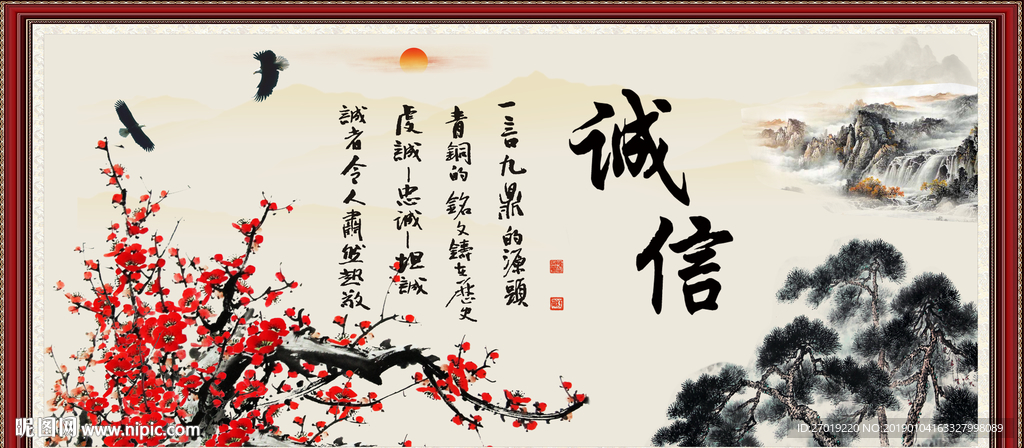 誠信
一言九鼎的源頭
青銅的銘文鑄在歷史
虔誠—忠誠—坦誠
誠者令人肅然熱敬
昵图网 www.nipic.com
ID:27019220 NO:20190104163327998089